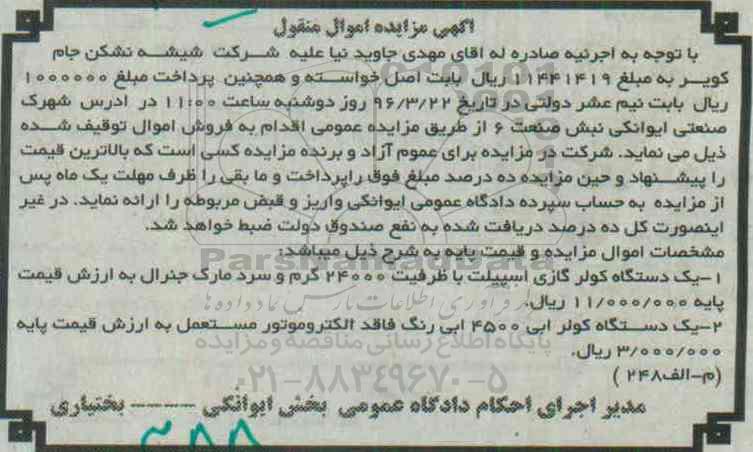 آگهی مزایده اموال منقول
با توجه به اجرائیه صادره له اقای مهدی جاوید نیا علیه شرکت شیشه نشکن جام
کویر به مبلغ ۱۱۴۴۱۴۱۹ ریال بابت اصل خواسته و همچنین پرداخت مبلغ ۱۰۰۰۰۰۰
ریال بابت نیم عشر دولتی در تاریخ ۹۶/۳/۲۲ روز دوشنبه ساعت ۱۱:۰۰ در ادرس شهرک
صنعتی ایوانکی نبش صنعت ۶ از طریق مزایده عمومی اقدام به فروش اموال توقیف شده
ذیل می نماید. شرکت در مزایده برای عموم آزاد و برنده مزایده کسی است که بالاترین قیمت
را پیشنهاد و حین مزایده ده درصد مبلغ فوق راپرداخت و ما بقی را ظرف مهلت یک ماه پس
از مزایده به حساب سپرده دادگاه عمومی ایوانکی واریز و قبض مربوطه را ارائه نماید. در غیر
اینصورت کل ده درصد دریافت شده به نفع صندوق دولت ضبط خواهد شد.
مشخصات اموال مزایده و قیمت پایه به شرح ذیل میباشد:
۱-یک دستگاه کولر گازی اسپیلت با ظرفیت ۲۴۰۰۰ گرم و سرد مارک جنرال به ارزش قیمت
پایه ۱۱/۰۰۰/۰۰۰ ریال.
۲-یک دستگاه کولر ابی ۴۵۰۰ ابی رنگ فاقد الکتروموتور مستعمل به ارزش قیمت پایه
۳/۰۰۰/۰۰۰ ریال.
(م-الف۲۴۸ )
مدیر اجرای احکام دادگاه عمومی بخش ایوانکی ------ بختیاری
ParsNamadData
پایگاه اطلاع رسانی مناقصه و مزایده
۰۲۱-۸۸۳۴۹۶۷۰-۵